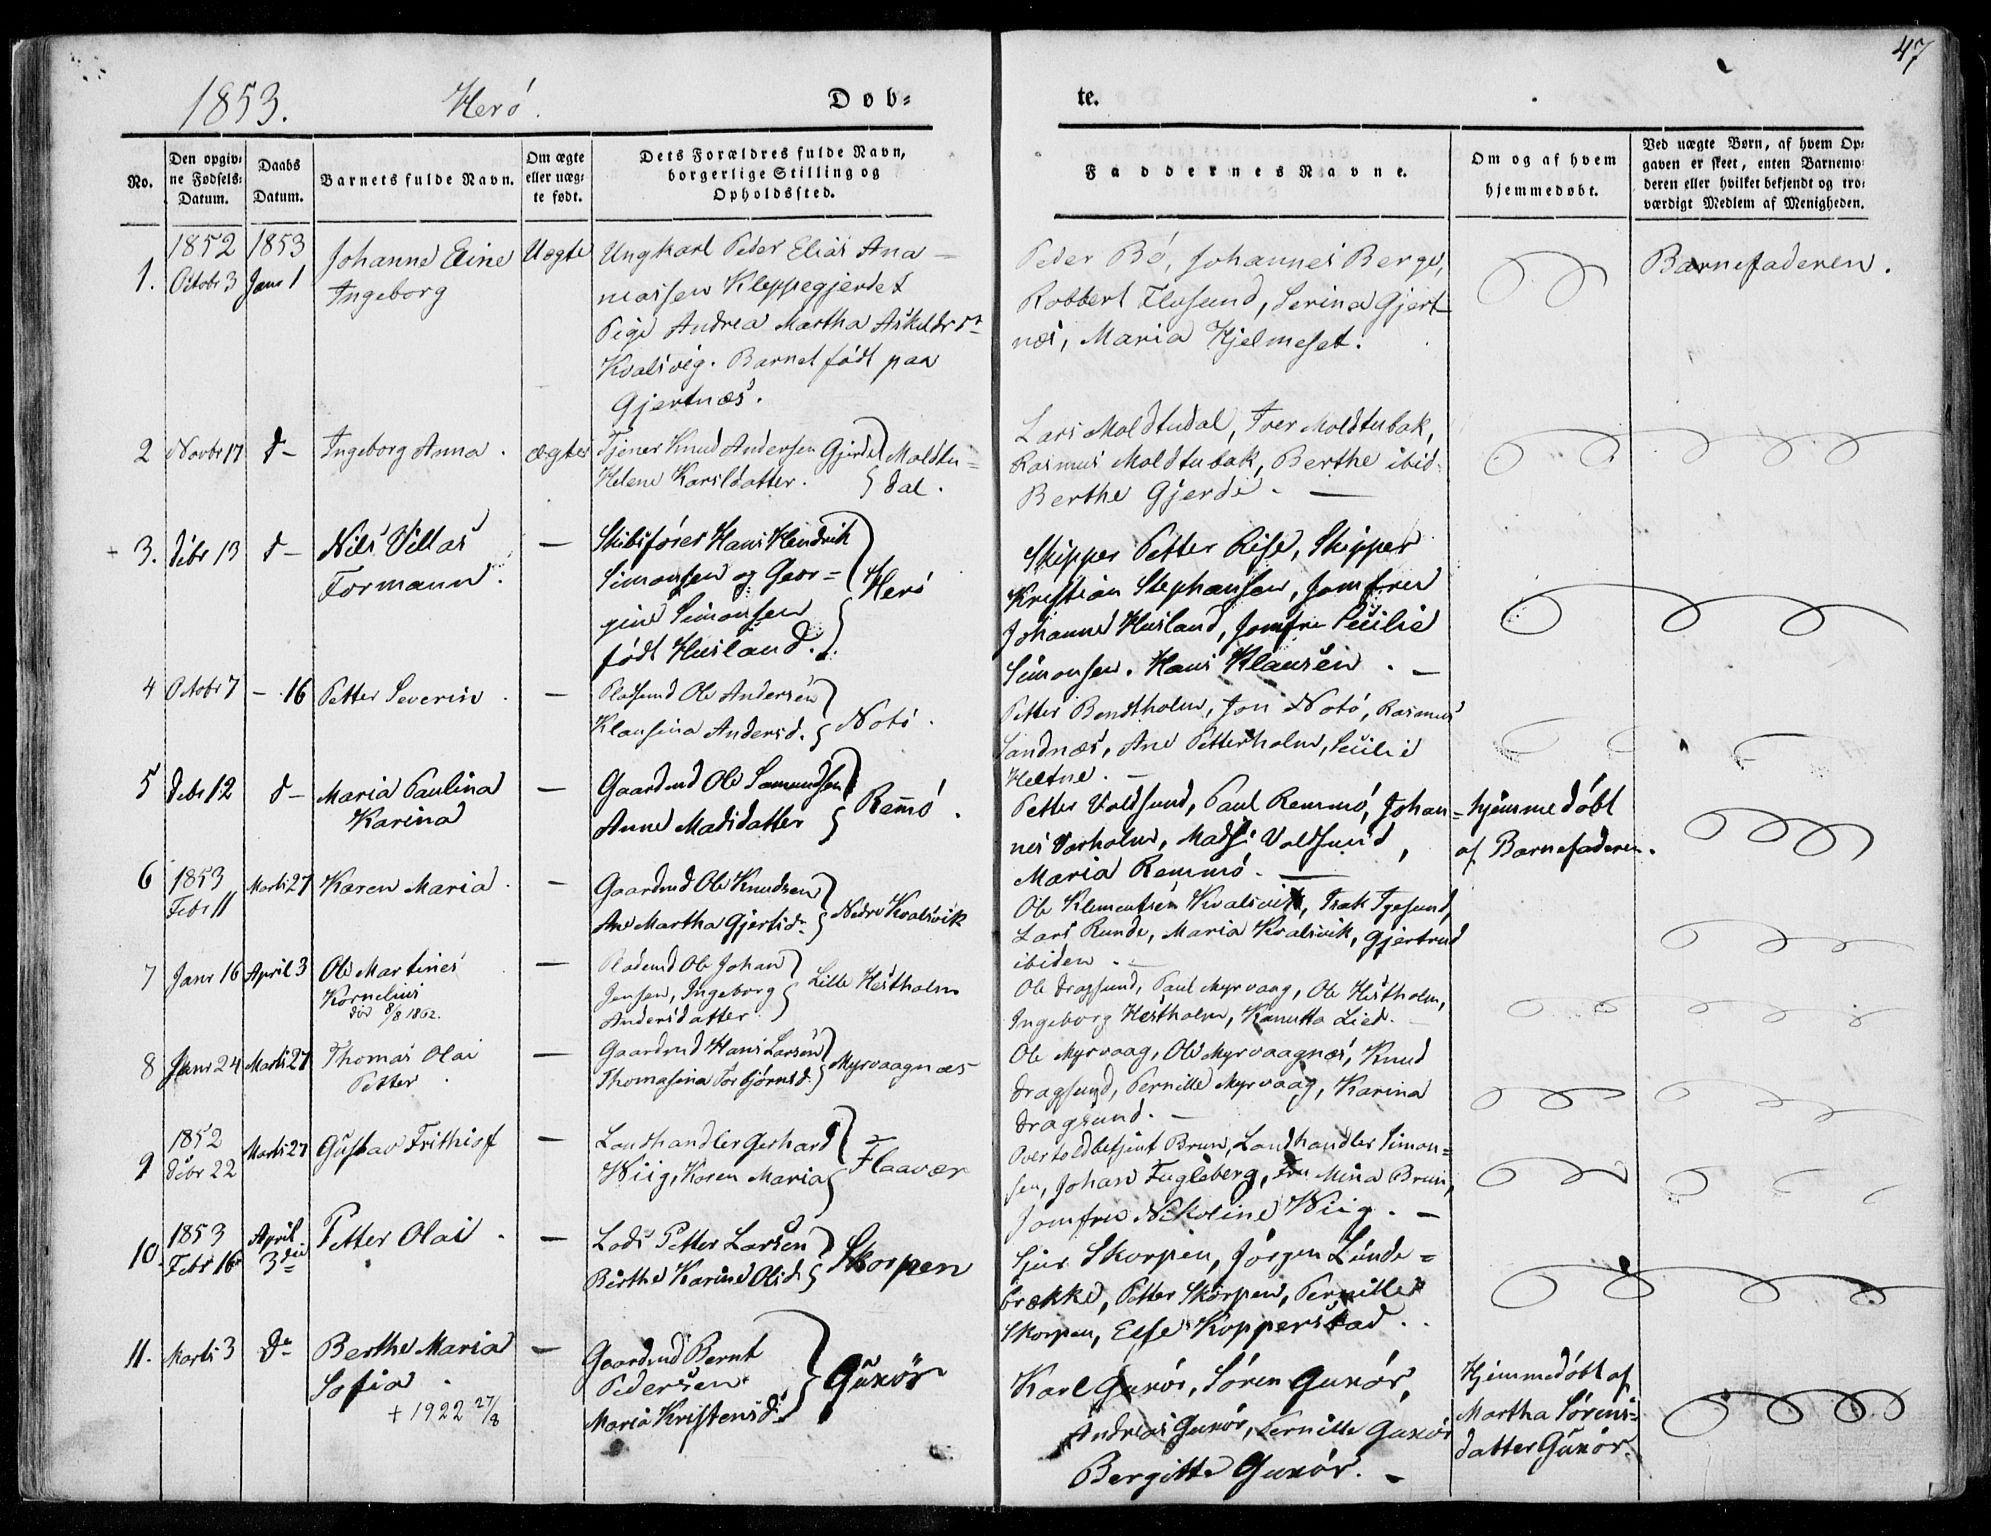 47
1853. Herö. Døb-
te.
No.
Den opgiv-
ne Fødsels-
Datum.
Daabs
Datum.
Barnets fulde Navn.
Om ægte
eller uæg-
te født.
Dets Forældres fulde Navn,
borgerlige Stilling og
Opholdssted.
Faddernes Navne.
Om og af hvem
hjemmedøbt.
Ved uægte Børn, af hvem Op-
gaven er skeet, enten Barnemo-
deren eller hvilket bekjendt og tro-
værdigt Medlem af Menigheden.
1.
1852
Octobr 3
1853
Janr 1
Johanne Eline
Ingeborg
Uægte
Ungkarl Peder Elias Ana-
niassen Kleppegjerdet
Pige Andrea Martha Askildsdr
Kvalsvig. Barnet født paa
Gjertnæs.
Peder Bö, Johannes Berge,
Robbert Flusund, Serina Gjert
næs, Maria Hjelmeset.
Barnefaderen.
2
Novbr 17
d-
Ingeborg Anna.
ægte
Tjener Knud Andersen Gjerde
Helene Karlsdatter.
Moldtu-
dal.
Lars Moldtudal, Iver Moldtubak,
Rasmus Moldtubak, Berthe ibid.
Berthe Gjerde. —
3.
Debr 13
d-
Nils Villas
Formann.
—
Skibsförer Hans Hendrik
Simonsen og Geor-
gine Simonsen
født Husland.
Herö
Skipper Petter Rise, Skipper
Kristian Stephansen, Jomfru
Johanne Husland, Jomfru Cecilie
Simonsen. Hans Klausen. —
4
Octobr 7
- 16
Petter Severin.
—
Pladsmd Ole Andersen
Klausina Andersd.
Notö.
Petter Bondtholm, Jon Notö, Rasmus
Sandnæs, Ane Petterholm, Cecilie
Heltne. —
5
Debr 12
d-
Maria Paulina
Karina
—
Gaardmd Ole Samundsen
Anne Madsdatter
Remö.
Petter Voldsund, Paul Remmö, Johan-
nes Vorholm, Mads Voldsund,
Maria Remmö. —
hjemmedöbt
af Barnefaderen.
6
1853
Febr 11
Marts 27
Karen Maria.
—
Gaardmd Ole Knudsen
Ane Martha Gjertsdr
Nedre Kvalsvik
Ole Klementsen Kvalsvik, Isak Tjesund,
Lars Runde, Maria Kvalsvik, Gjertrud
ibidem. —
7
Janr 16
April 3
Ole Martines
Kornelius
död 8/8 1862.
—
Pladsmd Ole Johan
Jensen, Ingeborg
Andersdatter
Lille Hestholm
Ole Dragsund, Paul Myrvaag, Ole Hestholm,
Ingeborg Hestholm, Kanutta Lied. —
8
Janr 24
Marts 27
Thomas Olai
Petter.
—
Gaardmd Hans Larsen
Thomasina Torbjørnsd.
Myrvaagnæs
Ole Myrvaag, Ole Myrvaagnæs, Knud
Dragsund, Pernille Myrvaag, Karina
Dragsund. —
9
1852
Debr 22
Marts 27
Gustav Frithiof
—
Landhandler Gerhard
Wiig, Karen Maria
Flaavær
Overtoldbetjent Brun, Landhandler Simon-
sen, Johan Fugleberg, Fru Mina Brun,
Jomfru Nikoline Wiig. —
10.
1853
Febr 16
April
3die
Petter Olai.
—
Lods Petter Larsen
Berthe Karine Olsd.
Skorpen
Sjur Skorpen, Jörgen Lunde-
brække, Petter Skorpen, Pernille
Skorpen, Else Kopperstad.
11.
Marts 3
do
Berthe Maria
Sofia.
+ 1922 27/8
—
Gaardmd Bernt
Pedersen
Maria Kristensd.
Gurör
Karl Gurör, Sören Gurör,
Andreas Gurör, Pernille Gurör
Bergitte Gurör. —
Hjemmedöbt af
Martha Sörens-
datter Gurör.